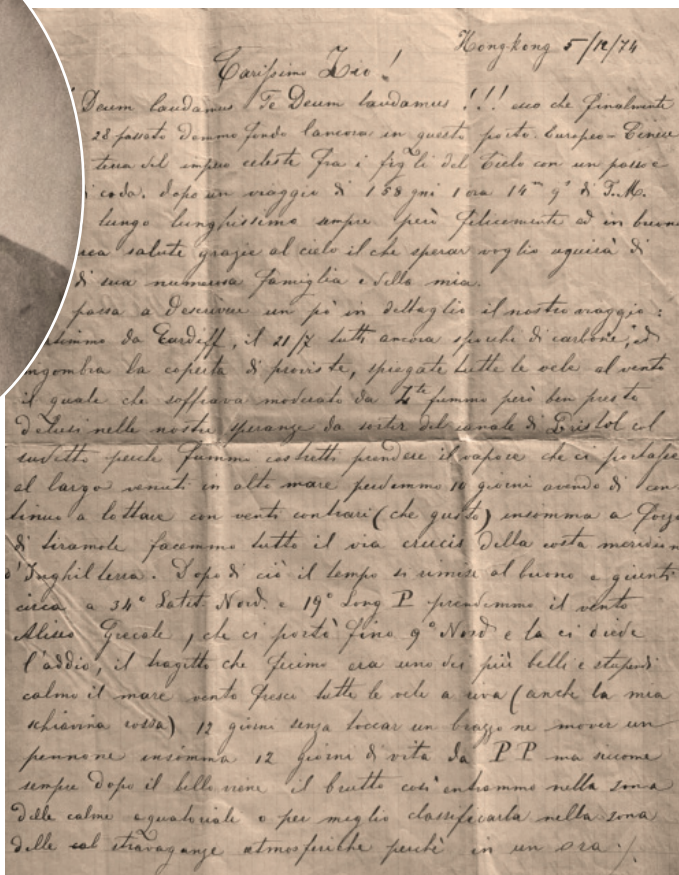 Hongkong 5/12/74
Carissimo Zio!
Deum laudamus. Te Deum laudamus!!! ecco che finalmente
28 passato demmo fondo l'ancora in questo porto. Europeo-Cinese
terra del impero celeste fra i figli del Cielo con un passo e
coda. dopo un viaggio di 158 gni 1 ora 14m
lungo lunghissimo sempre però felicemente ed in buona
salute grazie al cielo il che sperar voglio di
di sua numerosa famiglia e della mia.
passa a descrivere un pò in dettaglio il nostro viaggio:
da Cardiff, il 21/7 tutti ancora sporchi di carbone, ed
ingombra la coperta di proviste, spiegate tutte le vele al vento
il quale che soffiava moderato da fummo però ben presto
delusi nelle nostre speranze da sortir del canale di Bristol col
sudetto perche fummo costretti prendere il vapore che ci portasse
al largo venuti in alto mare perdemmo 10 giorni avendo di con-
tinuo a lottare con venti contrari (che gusto) insomma a forza
di tiramole facemmo tutto il via crucis della costa meridion
d'Inghilterra. Dopo di ciò il tempo si rimise al buono e giunti
circa a 34° Latit. Nord. e 19° Long P prendemmo il vento
Aliseo Grecale, che ci portò fino 9° Nord e la ci diede
l'addio, il tragitto che fecimo era uno dei più belli e stupendi
calmo il mare vento fresco tutte le vele a riva (anche la mia
schiavina rossa) 12 giorni senza toccar un braggo ne mover un
pennone insomma 12 giorni di vita da P P ma siccome
sempre dopo il bello viene il brutto così entrammo nella zona
delle calme equatoriale o per meglio classificarla nella zona
delle stravaganze atmosferiche perchè in un ora ./.